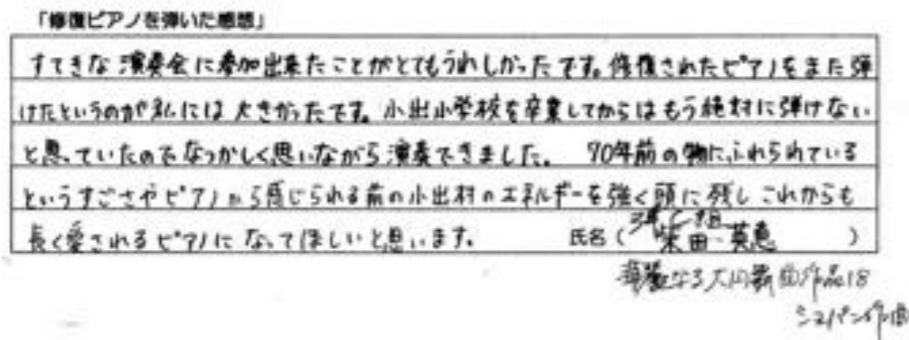 「修復ピアノを弾いた感想」
すてきな演奏会に参加出来たことがとてもうれしかったです。修復されたピアノをまた弾
けたというのが私には大きかったです。小出小学校を卒業してからはもう絶対に弾けない
と思っていたのでなつかしく思いながら演奏できました。 70年前の物にふれられている
というすごさやピアノから感じられる前の小出村のエネルギーを強く頭に残しこれからも
長く愛されるピアノになってほしいと思います。 氏名( 柴田 英恵 )
華麗なる大円舞曲作品18
ショパン作曲